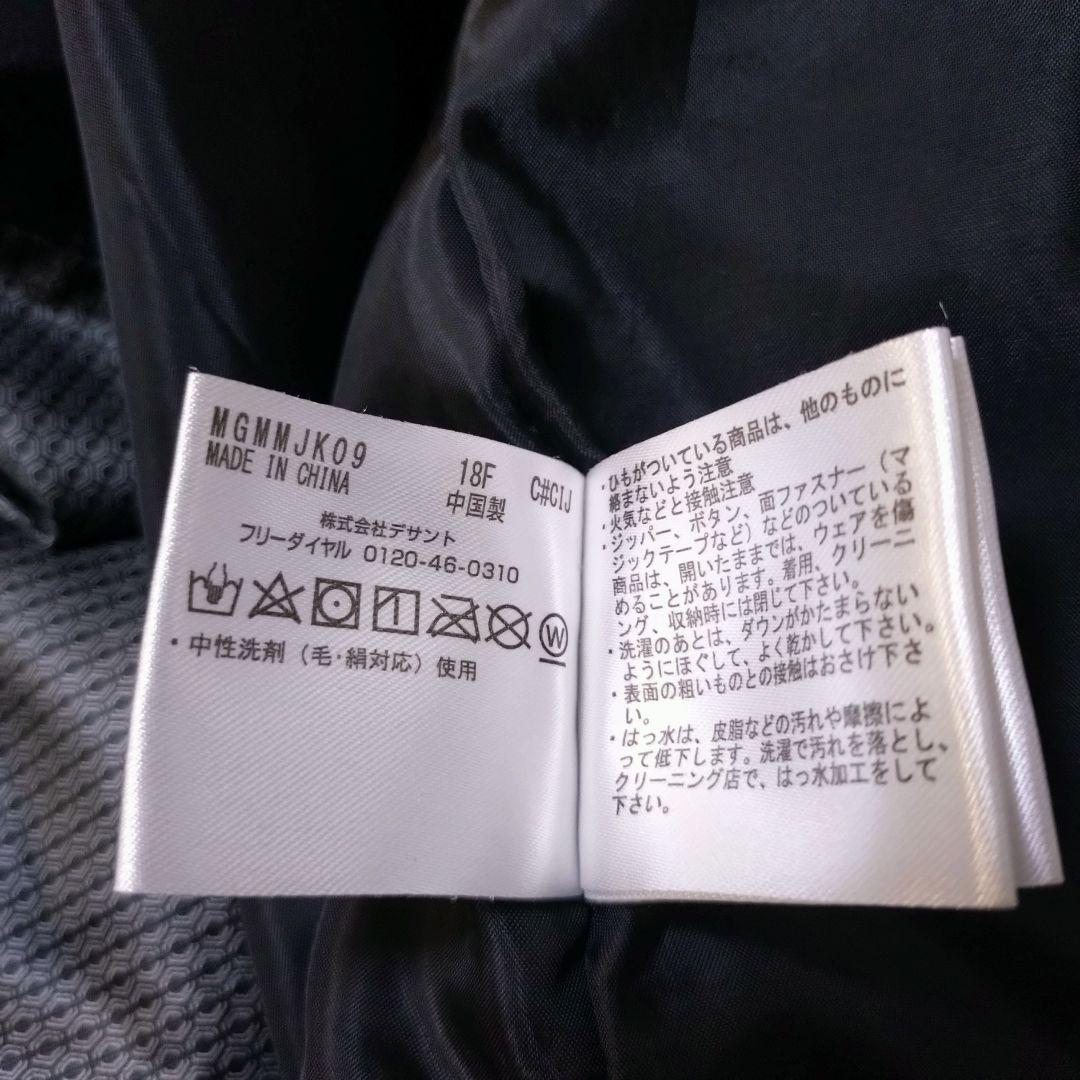 MGMMJK09
MADE IN CHINA
18F C#CIJ
中国製
株式会社デサント
フリーダイヤル 0120-46-0310
W
・中性洗剤（毛・絹対応）使用
・ひもがついている商品は、他のものに
絡まないよう注意
・火気などと接触注意
・ジッパー、ボタン、面ファスナー（マ
ジックテープなど）などのついている
商品は、開いたままでは、ウェアを傷
めることがあります。着用、クリーニ
ング、収納時には閉じて下さい。
・洗濯のあとは、ダウンがかたまらない
ようにほぐして、よく乾かして下さい。
・表面の粗いものとの接触はおさけ下さ
い。
・はっ水は、皮脂などの汚れや摩擦によ
って低下します。洗濯で汚れを落とし、
クリーニング店で、はっ水加工をして
下さい。